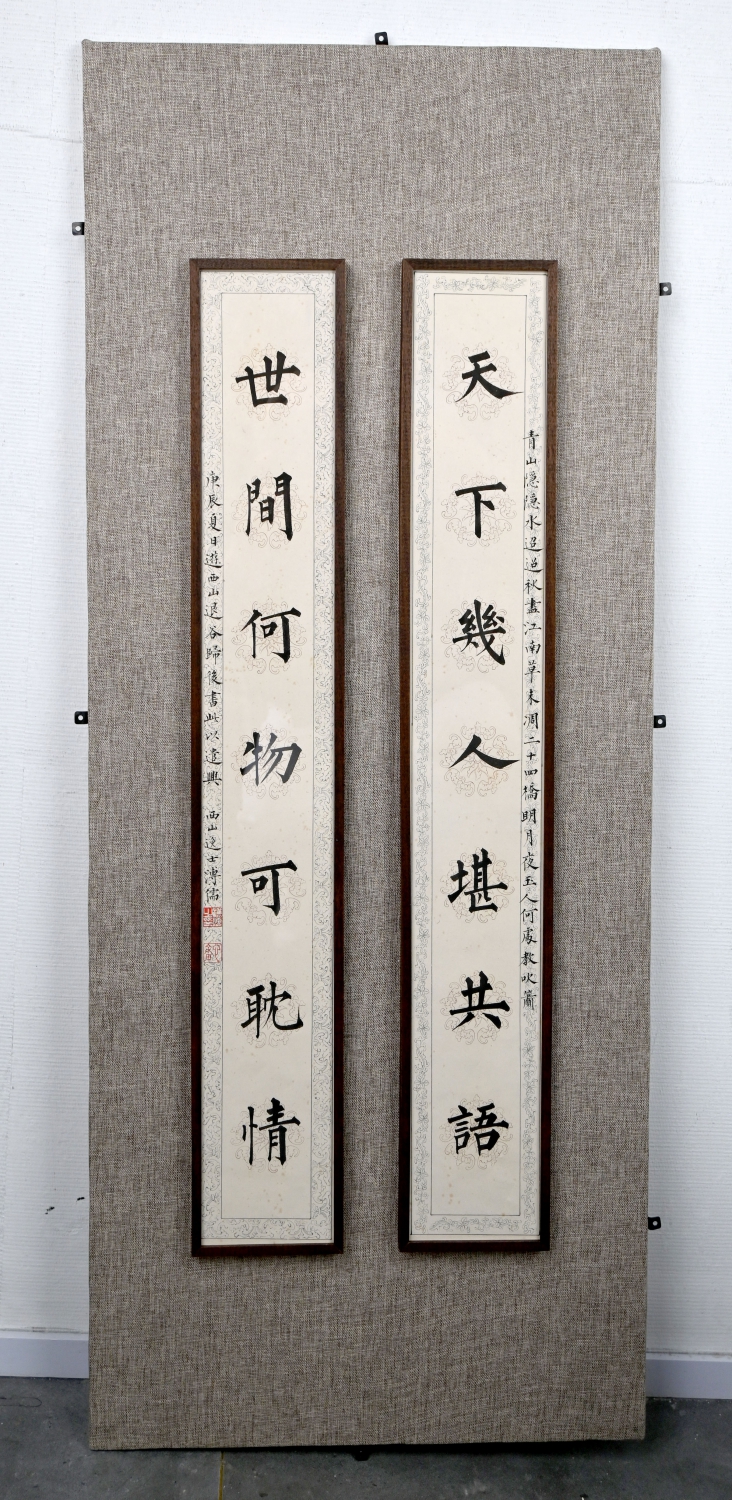 青山隱隱水迢迢秋盡江南草未凋二十四橋明月夜玉人何處教吹簫
天下幾人堪共語
世間何物可耽情
庚辰夏日遊西山退谷歸後書此以遣興 西山逸士溥儒